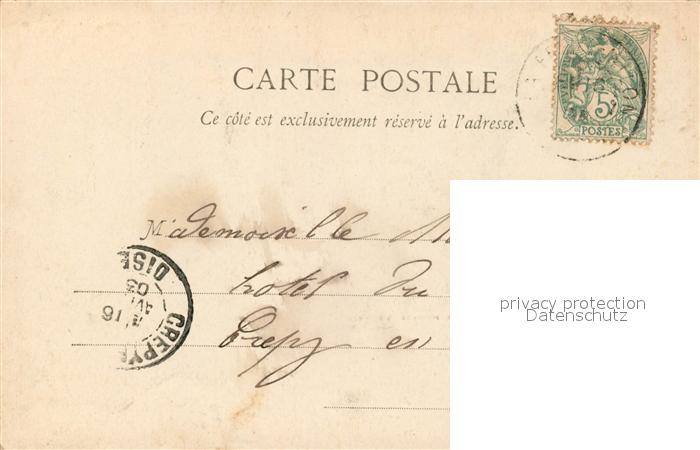 CARTE POSTALE
Ce côté est exclusivement réservé à l'adresse.
5c
POSTES
Mademoiselle
hotel du
Crepy en
CREPY
OISE
16
AVR
03
privacy protection
Datenschutz